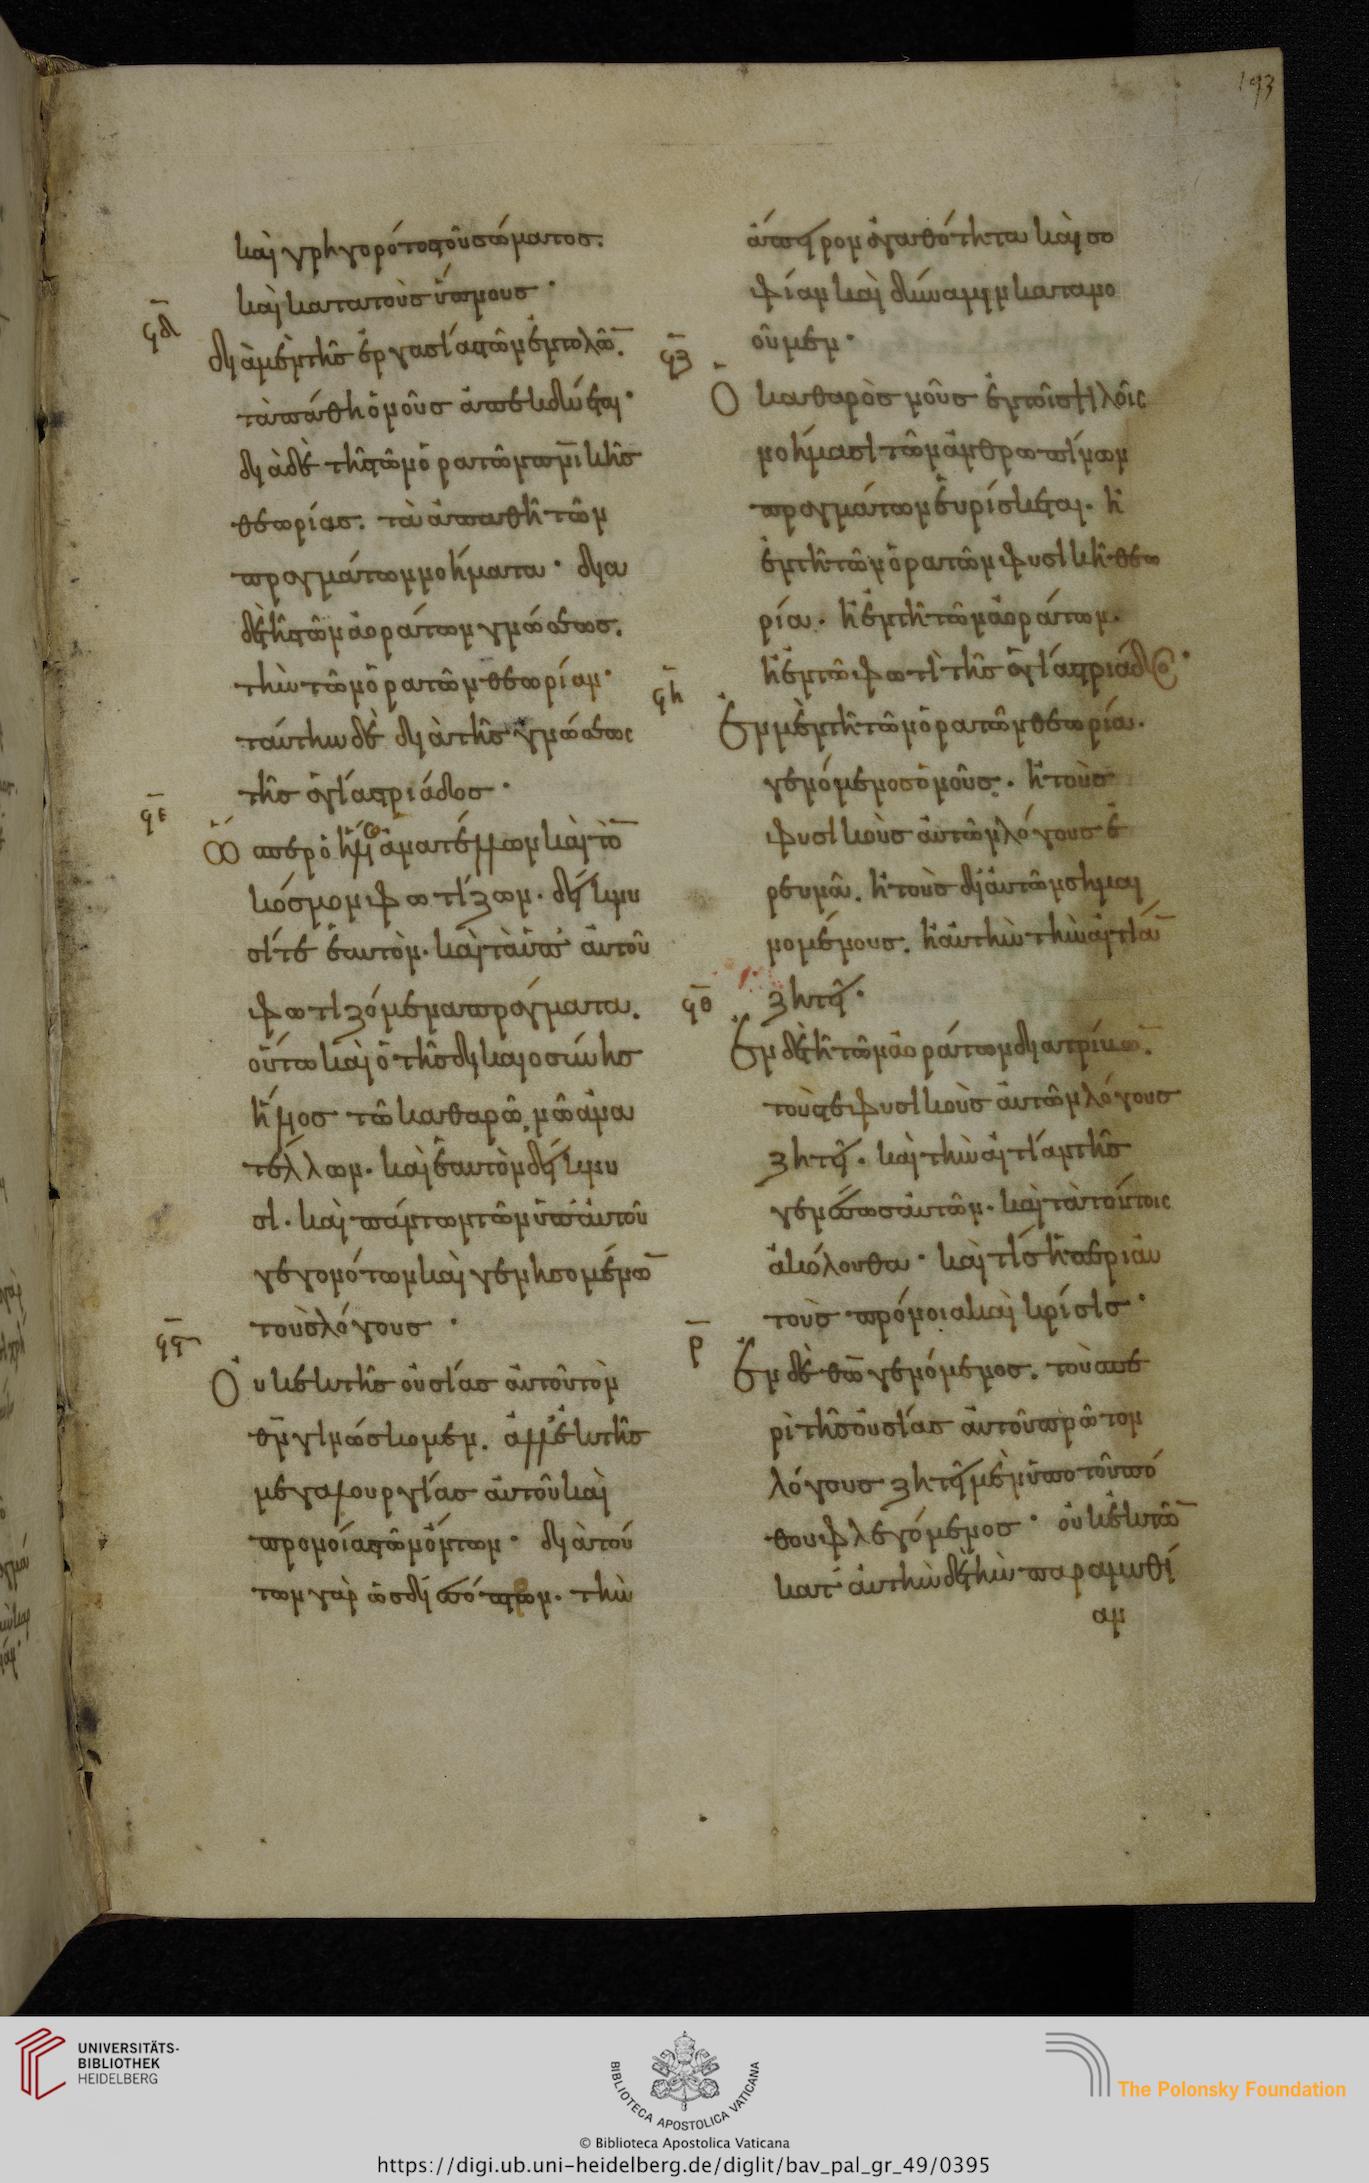 193
καὶ γρηγορότος τοῦ σώματος.
καὶ κατὰ τοὺς ὕπνους ·
ϟδ
διὰ μὲν τῆς ἐργασίας τῶν ἐντολῶ̅.
τὰ πάθη ὁ νοῦς ἀπεκδύεται ·
διὰ δὲ τῆς τῶν ὁρατῶν πν̅ικῆς
θεωρίας. τὰ ἀπαθῆ τῶν
πραγμάτων νοήματα · δια
δὲ τῆς τῶν ἀοράτων γνώσεως.
τὴν τῶν ὁρατῶν θεωρίαν ·
ταύτην δὲ διὰ τῆς γνώσεως
τῆς ἁγίας τριάδος ·
ϟε
Ὥσπερ ὁ ἥλιος ἀνατέλλων καὶ τὸ̅
κόσμον φωτίζων. δείκνυ
σί τε ἑαυτὸν. καὶ τὰ ὑπ' αὐτοῦ
φωτιζόμενα πράγματα.
οὕτω καὶ ὁ τῆς δικαιοσύνης
ἥλιος τῶ καθαρῶ νῶ ἀνα
τέλλων. καὶ ἑαυτὸν δείκνυ
σι. καὶ πάντων τῶν ὑπ' αὐτοῦ
γεγονότων καὶ γενησομένω̅
τοὺς λόγους ·
ϟϛ
Οὐκ ἐκ τῆς οὐσίας αὐτοῦ τὸν
θν̅ γινώσκομεν. ἀλλ' ἐκ τῆς
μεγαλουργίας αὐτοῦ καὶ
προνοίας τῶν ὄντων · διὰ τού
των γὰρ ὡς δι' ἐσόπτρων. τὴν
ἄπειρον ἀγαθότητα καὶ σο
φίαν καὶ δύναμιν κατανο
οῦμεν ·
ϟζ
Ὁ καθαρὸς νοῦς ἢ ἐν τοῖς ψιλοῖς
νοήμασι τῶν ἀνθρωπίνων
πραγμάτων εὑρίσκεται. ἢ
ἐν τῆ τῶν ὁρατῶν φυσικῆ θεω
ρία. ἢ ἐν τῆ τῶν ἀοράτων.
ἢ ἐν τῶ φωτὶ τῆς ἁγίας τριάδος ·
ϟη
Ἐν μὲν τῆ τῶν ὁρατῶν θεωρία.
γενόμενος ὁ νοῦς. ἢ τοὺς
φυσικοὺς αὐτῶν λόγους ἐ
ρευνᾶ. ἢ τοὺς δι' αὐτῶν σημαι
νομένους. ἢ αὐτὴν τὴν αἰτία̅
ζητεῖ ·
ϟθ
Ἐν δὲ τῆ τῶν ἀοράτων διατρίβω̅.
τούς τε φυσικοὺς αὐτῶν λόγους
ζητεῖ. καὶ τὴν αἰτίαν τῆς
γενέσεως αὐτῶν. καὶ τὰ τούτοις
ἀκόλουθα · καὶ τίς ἡ περὶ αὐ
τοὺς πρόνοια καὶ κρίσις ·
ρ
Ἐν δὲ θω̅ γενόμενος. τοὺς πε
ρὶ τῆς οὐσίας αὐτοῦ πρῶτον
λόγους ζητεῖ μὲν ὑπὸ τοῦ πό
θου φλεγόμενος · οὐκ ἐκ τῶ̅
κατ' αὐτὴν δὲ τὴν παραμυθί
αν
UNIVERSITÄTS-
BIBLIOTHEK
HEIDELBERG
BIBLIOTECA APOSTOLICA VATICANA
The Polonsky Foundation
© Biblioteca Apostolica Vaticana
https://digi.ub.uni-heidelberg.de/diglit/bav_pal_gr_49/0395